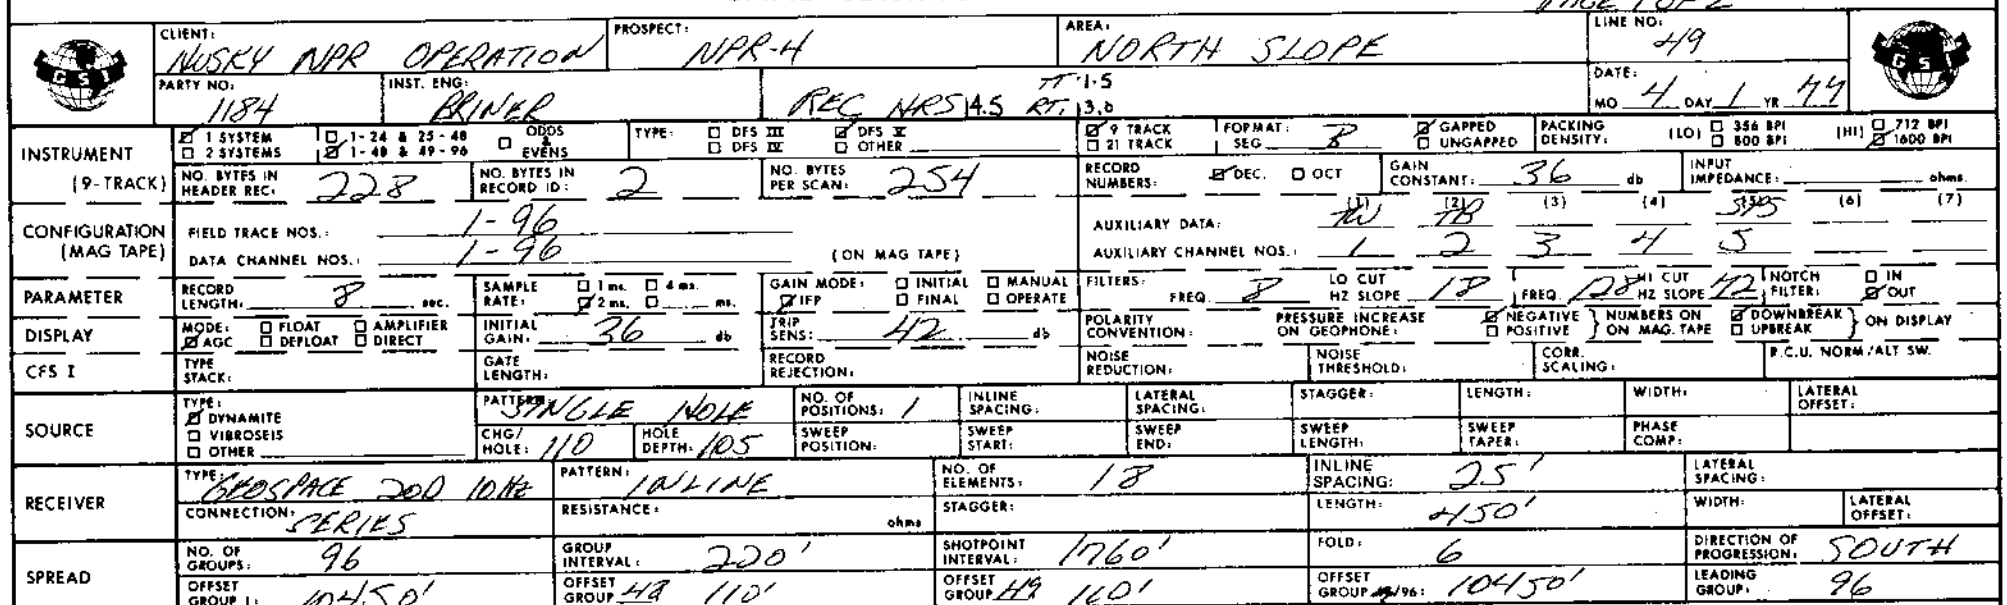 PAGE 1 OF 2
GSI CLIENT: HUSKY NPR OPERATION PROSPECT: NPR-4 AREA: NORTH SLOPE LINE NO: 49 GSI
PARTY NO: 1184 INST. ENG: BRINER REC NRS 14.5 RT. 13.0 TT 1.5 DATE: MO 4 DAY 1 YR 77
INSTRUMENT
(9-TRACK)
1 SYSTEM 1-24 & 25-48 ODDS & EVENS TYPE: DFS III DFS V 9 TRACK FORMAT: SEG B GAPPED PACKING DENSITY: (LO) 356 BPI (HI) 712 BPI
2 SYSTEMS 1-48 & 49-96 DFS IV OTHER 21 TRACK UNGAPPED 800 BPI 1600 BPI
NO. BYTES IN HEADER REC: 228 NO. BYTES IN RECORD ID: 2 NO. BYTES PER SCAN: 254 RECORD NUMBERS: DEC. OCT GAIN CONSTANT: 36 db INPUT IMPEDANCE: ohms.
CONFIGURATION
(MAG TAPE)
FIELD TRACE NOS.: 1-96 AUXILIARY DATA: (1) TW (2) TB (3) (4) (5) (6) (7)
DATA CHANNEL NOS.: 1-96 (ON MAG TAPE) AUXILIARY CHANNEL NOS.: 1 2 3 4 5
PARAMETER
RECORD LENGTH: 8 sec. SAMPLE RATE: 1 ms. 4 ms. 2 ms. ms. GAIN MODE: INITIAL MANUAL IFP FINAL OPERATE FILTERS: FREQ. 8 LO CUT HZ SLOPE 18 FREQ. 128 HI CUT HZ SLOPE 72 NOTCH FILTER: IN OUT
DISPLAY
MODE: FLOAT AMPLIFIER AGC DEFLOAT DIRECT INITIAL GAIN: 36 db TRIP SENS: 42 db POLARITY CONVENTION: PRESSURE INCREASE ON GEOPHONE: NEGATIVE POSITIVE } NUMBERS ON ON MAG. TAPE DOWNBREAK UPBREAK } ON DISPLAY
CFS I
TYPE STACK: GATE LENGTH: RECORD REJECTION: NOISE REDUCTION: NOISE THRESHOLD: CORR. SCALING: R.C.U. NORM/ALT SW.
SOURCE
TYPE: DYNAMITE VIBROSEIS OTHER PATTERN: SINGLE HOLE NO. OF POSITIONS: 1 INLINE SPACING: LATERAL SPACING: STAGGER: LENGTH: WIDTH: LATERAL OFFSET:
CHG/HOLE: 110 HOLE DEPTH: 105 SWEEP POSITION: SWEEP START: SWEEP END: SWEEP LENGTH: SWEEP TAPER: PHASE COMP:
RECEIVER
TYPE: GEOSPACE 20D 10 Hz PATTERN: INLINE NO. OF ELEMENTS: 18 INLINE SPACING: 25' LATERAL SPACING:
CONNECTION: SERIES RESISTANCE: ohms STAGGER: LENGTH: 450' WIDTH: LATERAL OFFSET:
SPREAD
NO. OF GROUPS: 96 GROUP INTERVAL: 220' SHOTPOINT INTERVAL: 1760' FOLD: 6 DIRECTION OF PROGRESSION: SOUTH
OFFSET GROUP 1: 10450' OFFSET GROUP 48 110' OFFSET GROUP 49 110' OFFSET GROUP /96: 10450' LEADING GROUP: 96